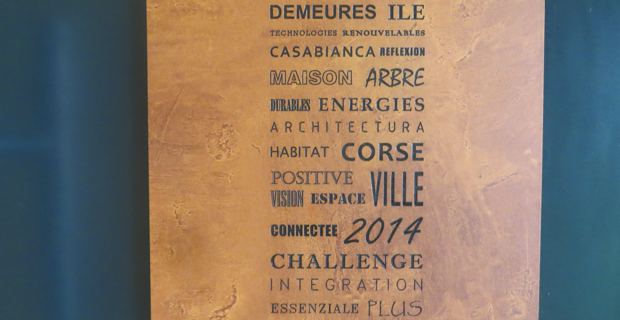 DEMEURES ILE
TECHNOLOGIES RENOUVELABLES
CASABIANCA REFLEXION
MAISON ARBRE
DURABLES ENERGIES
ARCHITECTURA
HABITAT CORSE
POSITIVE VILLE
VISION ESPACE
CONNECTEE 2014
CHALLENGE
INTEGRATION
ESSENZIALE PLUS